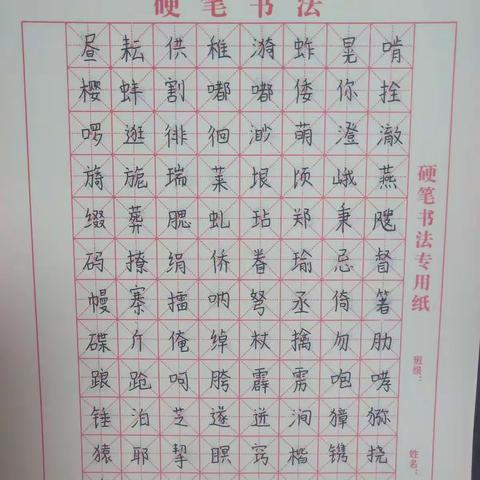 硬笔书法
昼耘供稚漪蚱晃啃
樱蚌割嘟嘟倭你拴
啰逛徘徊渺萌澄澈
旖旎瑞莱垠顷峨燕
缀葬腮虬玷郑秉飕
码撩绢侨眷瑜忌督
幔寨擂呐弩丞倚箸
碟斤俺绰杖擒勿肋
踉跄呵胯霹雳咆哮
锤泊芝遂迸涧獐猕
猿耶挈瞑窍楷镌挠
硬笔书法专用纸
班级：
姓名：